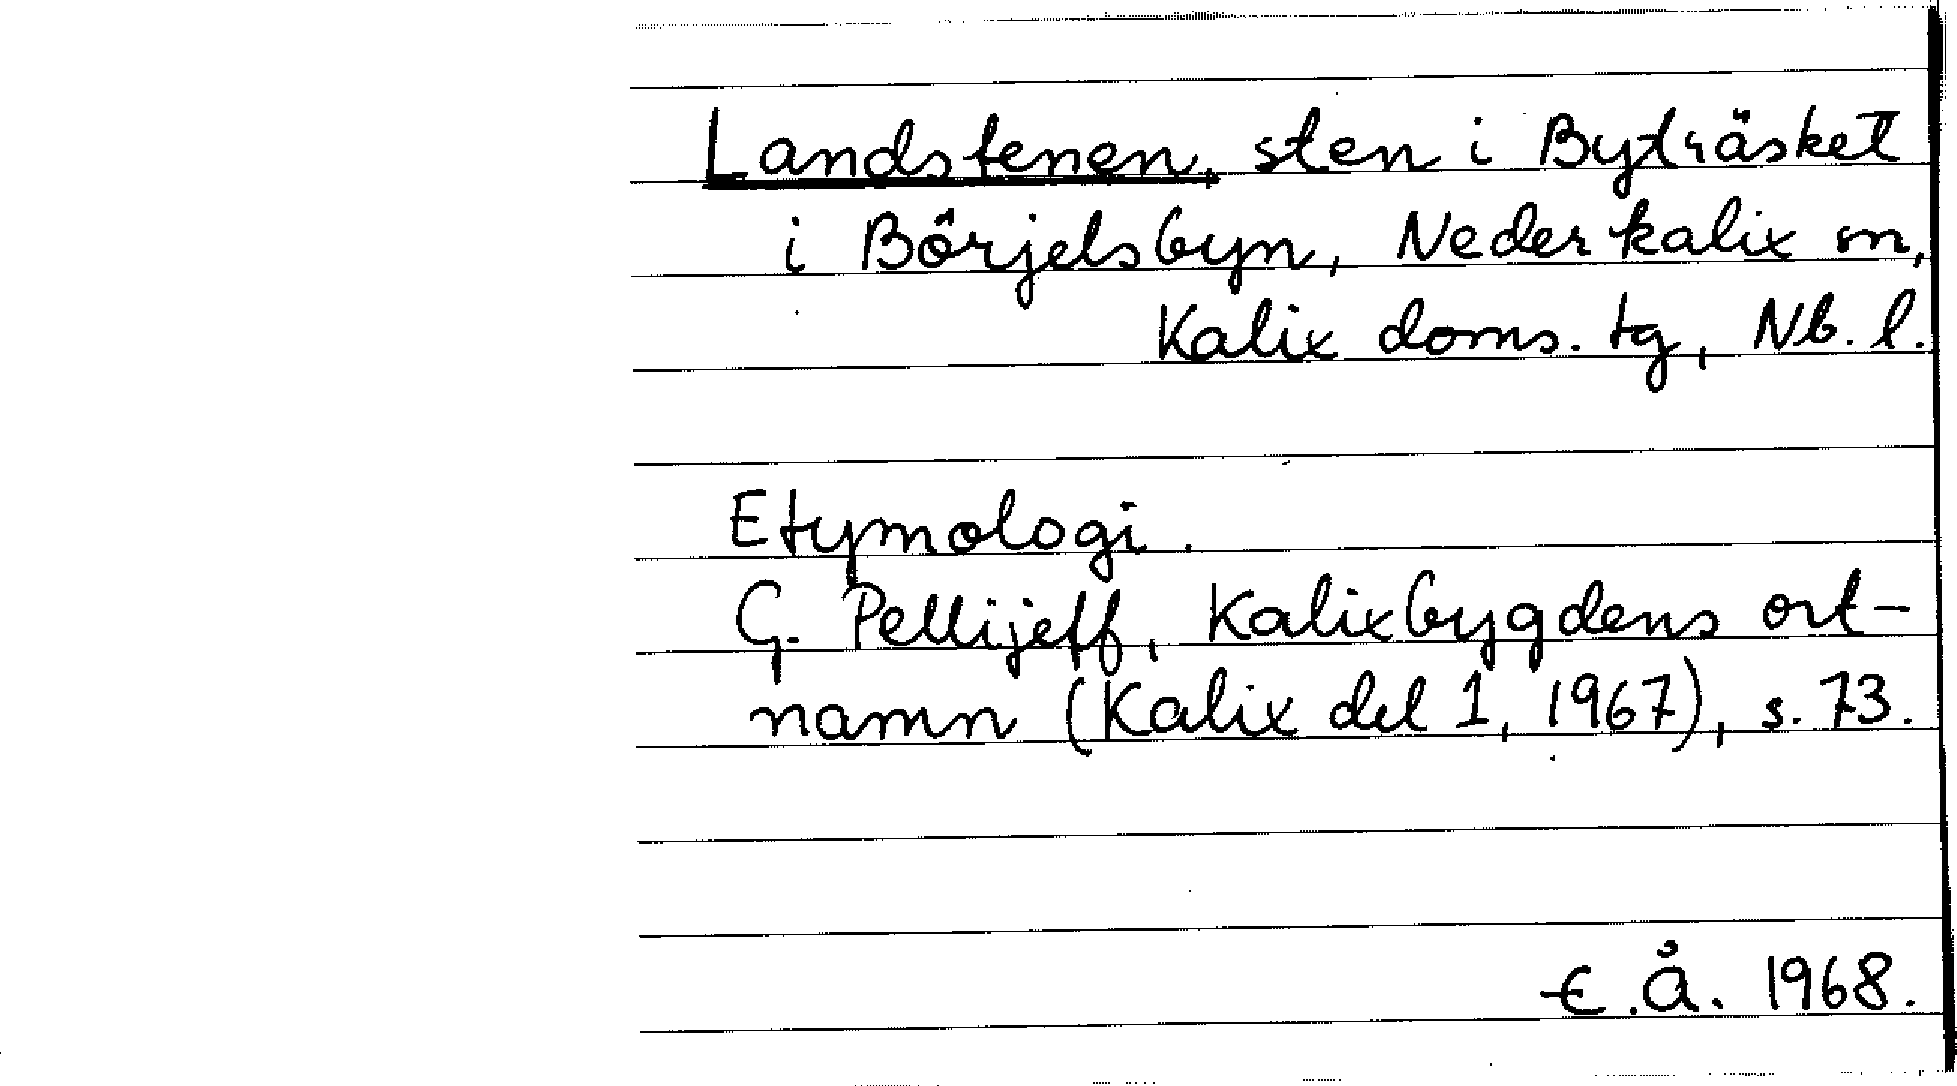 Landstenen, sten i Byträsket
i Börjelsbyn, Nederkalix sn,
Kalix doms. tg, Nb. l.
Etymologi.
G. Pellijeff, Kalixbygdens ort-
namn (Kalix del 1, 1967), s. 73.
E.Å. 1968.